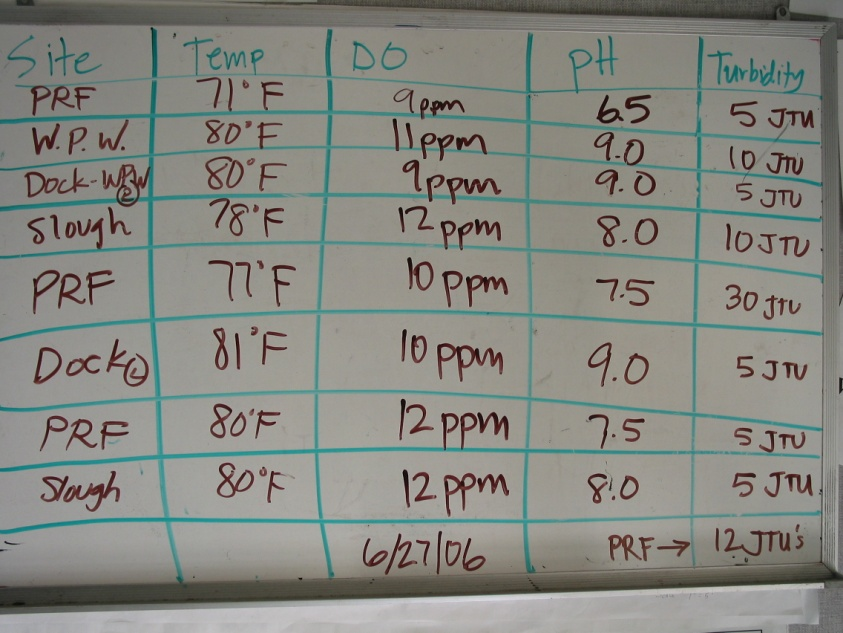 Site Temp DO pH Turbidity
PRF 71°F 9ppm 6.5 5 JTU
W.P.W. 80°F 11ppm 9.0 10 JTU
Dock-WPW 80°F 9ppm 9.0 5 JTU
Slough 78°F 12ppm 8.0 10 JTU
PRF 77°F 10ppm 7.5 30 JTU
Dock 81°F 10ppm 9.0 5 JTU
PRF 80°F 12ppm 7.5 5 JTU
Slough 80°F 12ppm 8.0 5 JTU
6/27/06 PRF→ 12 JTU's